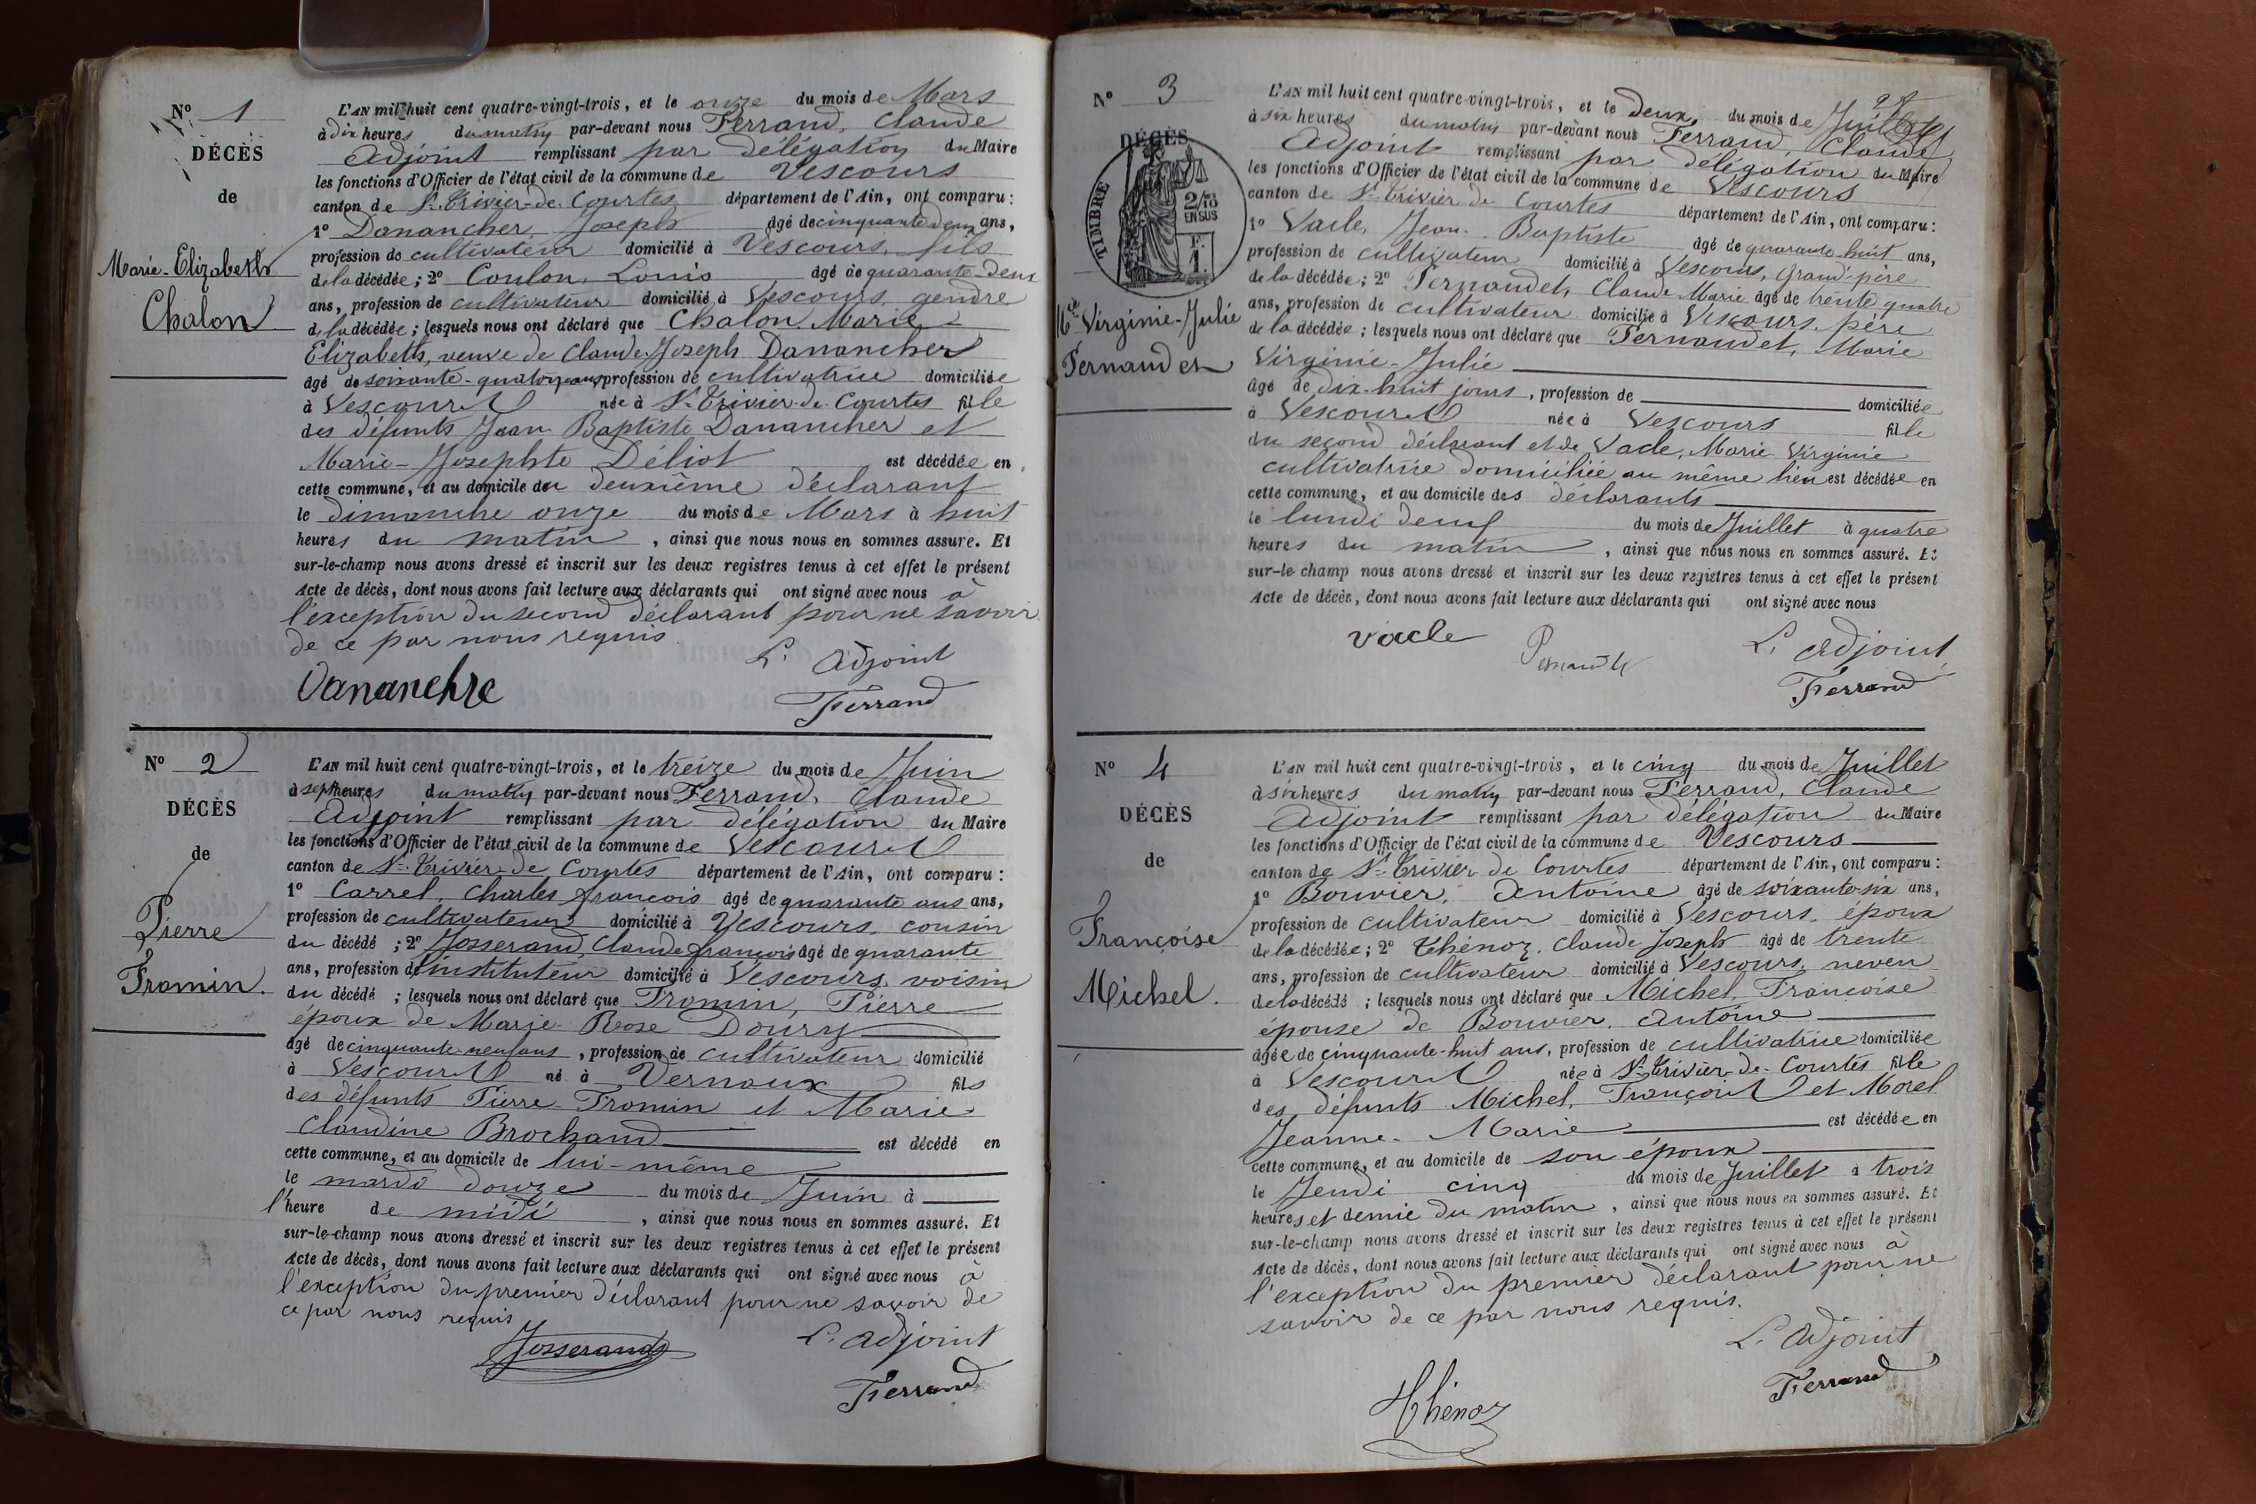 N° 1
DÉCÈS
de
Marie-Elizabeth
Chalon
L'AN mil huit cent quatre-vingt-trois, et le onze du mois de Mars
à dix heures du matin par-devant nous Ferrand, Claude
Adjoint remplissant par délégation du Maire
les fonctions d'Officier de l'état civil de la commune de Vescours
canton de St Trivier-de-Courtes département de l'Ain, ont comparu :
1° Danancher, Joseph âgé de cinquante deux ans,
profession de cultivateur domicilié à Vescours, fils
de la décédée ; 2° Coulon, Louis âgé de quarante-deux
ans, profession de cultivateur domicilié à Vescours, gendre
de la décédée ; lesquels nous ont déclaré que Chalon Marie
Elizabeth, veuve de Claude Joseph Danancher
âgé de soixante-quatorze ans profession de cultivatrice domiciliée
à Vescours née à St Trivier-de-Courtes fille
des défunts Jean Baptiste Danancher et
Marie-Josephte Déliot est décédée en
cette commune, et au domicile du deuxième déclarant
le dimanche onze du mois de Mars à huit
heures du matin, ainsi que nous nous en sommes assuré. Et
sur-le-champ nous avons dressé et inscrit sur les deux registres tenus à cet effet le présent
Acte de décès, dont nous avons fait lecture aux déclarants qui ont signé avec nous à
l'exception du second déclarant pour ne savoir
de ce par nous requis
L'Adjoint
Dananchre
Ferrand
N° 2
DÉCÈS
de
Pierre
Fromin.
L'AN mil huit cent quatre-vingt-trois, et le treize du mois de Juin
à sept heures du matin par-devant nous Ferrand, Claude
Adjoint remplissant par délégation du Maire
les fonctions d'Officier de l'état civil de la commune de Vescours
canton de St Trivier-de-Courtes département de l'Ain, ont comparu :
1° Carrel, Charles François âgé de quarante ans ans,
profession de cultivateur domicilié à Vescours, cousin
du décédé ; 2° Josserand, Claude François âgé de quarante
ans, profession d'instituteur domicilié à Vescours, voisin
du décédé ; lesquels nous ont déclaré que Fromin, Pierre
époux de Marie Rose Doury
âgé de cinquante-neuf ans, profession de cultivateur domicilié
à Vescours né à Vernoux fils
des défunts Pierre Fromin et Marie
Claudine Brochand est décédé en
cette commune, et au domicile de lui-même
le mardi douze du mois de Juin à
l'heure de midi, ainsi que nous nous en sommes assuré. Et
sur-le-champ nous avons dressé et inscrit sur les deux registres tenus à cet effet le présent
Acte de décès, dont nous avons fait lecture aux déclarants qui ont signé avec nous à
l'exception du premier déclarant pour ne savoir de
ce par nous requis
L'Adjoint
Josserand
Ferrand
N° 3
DÉCÈS
TIMBRE
2/10
EN SUS
F.
1.
Mie Virginie-Julie
Fernandet
L'AN mil huit cent quatre-vingt-trois, et le deux du mois de Juillet
à six heures du matin par-devant nous Ferrand, Claude
Adjoint remplissant par délégation du Maire
les fonctions d'Officier de l'état civil de la commune de Vescours
canton de St Trivier de Courtes département de l'Ain, ont comparu :
1° Vacle, Jean-Baptiste âgé de quarante-huit ans,
profession de cultivateur domicilié à Vescours, grand-père
de la décédée ; 2° Fernandet, Claude-Marie âgé de trente quatre
ans, profession de cultivateur domicilié à Vescours, père
de la décédée ; lesquels nous ont déclaré que Fernandet, Marie
Virginie-Julie
âgé de dix-huit jours, profession de domiciliée
à Vescours née à Vescours fille
du second déclarant et de Vacle, Marie Virginie
cultivatrice domiciliée au même lieu est décédée en
cette commune, et au domicile des déclarants
le lundi deux du mois de Juillet à quatre
heures du matin, ainsi que nous nous en sommes assuré. Et
sur-le-champ nous avons dressé et inscrit sur les deux registres tenus à cet effet le présent
Acte de décès, dont nous avons fait lecture aux déclarants qui ont signé avec nous
Vacle
L'Adjoint
Ferrand
N° 4
DÉCÈS
de
Françoise
Michel.
L'AN mil huit cent quatre-vingt-trois, et le cinq du mois de Juillet
à six heures du matin par-devant nous Ferrand, Claude
Adjoint remplissant par délégation du Maire
les fonctions d'Officier de l'état civil de la commune de Vescours
canton de St Trivier-de Courtes département de l'Ain, ont comparu :
1° Bouvier, Antoine âgé de soixante-six ans,
profession de cultivateur domicilié à Vescours, époux
de la décédée ; 2° Thénoz, Claude Joseph âgé de trente
ans, profession de cultivateur domicilié à Vescours, neveu
de la décédé ; lesquels nous ont déclaré que Michel, Françoise
épouse de Bouvier, Antoine
âgée de cinquante-huit ans, profession de cultivatrice domiciliée
à Vescours née à St Trivier-de-Courtes fille
des défunts Michel, François et Morel
Jeanne-Marie est décédée en
cette commune, et au domicile de son époux
le Jeudi cinq du mois de Juillet à trois
heures et demie du matin, ainsi que nous nous en sommes assuré. Et
sur-le-champ nous avons dressé et inscrit sur les deux registres tenus à cet effet le présent
Acte de décès, dont nous avons fait lecture aux déclarants qui ont signé avec nous à
l'exception du premier déclarant pour ne
savoir de ce par nous requis.
L'Adjoint
Thénoz
Ferrand